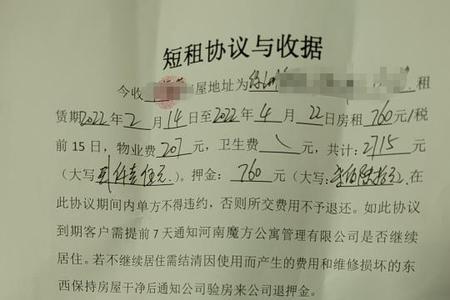 短租协议与收据
今收 屋地址为 租
赁期2022年2月14日至2022年4月22日房租760元/税
前15日,物业费207元,卫生费\元,共计:2715元
(大写 仟 佰 元)。押金:760元(大写: 佰陆拾元 在
此协议期间内单方不得违约,否则所交费用不予退还。如此协议
到期客户需提前7天通知河南魔方公寓管理有限公司是否继续
居住。若不继续居住需结清因使用而产生的费用和维修损坏的东
西保持房屋干净后通知公司验房来公司退押金。